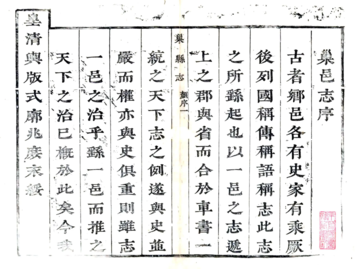 巢邑志序
古者鄉邑各有史家有乘厥
後列國稱傳稱語稱志此志
之所繇起也以一邑之志遞
上之郡與省而合於車書一
巢縣志
序一
統之天下志之例遂與史並
嚴而權亦與史俱重則雖志
一邑之治乎繇一邑而推之
天下之治已概於此矣今
皇清輿版式廓兆庶永綏